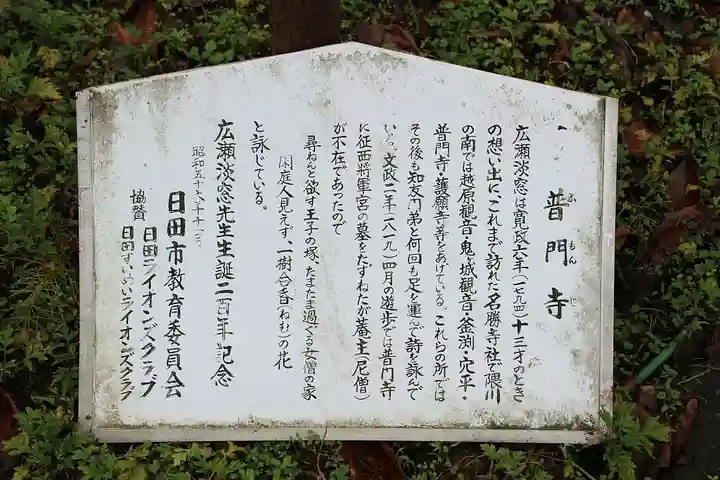 普門寺
ふもんじ
広瀬淡窓は寛政六年(一七九四)十三才のとき
の想い出に、これまで訪れた名勝寺社で隈川
の南では越原観音・鬼ヶ城観音・釜渕・穴平・
普門寺・護願寺等をあげている。これらの所では
その後も知友門弟と何回も足を運んで詩を詠んで
いる。文政二年(一八一九)四月の遊歩では普門寺
に征西将軍宮の墓をたずねたが菴主(尼僧)
が不在であったので
尋ねんと欲す王子の塚、たまたま過ぐる女僧の家
閑庭人見えず、一樹合昏(ねむ)の花
と詠じている。
広瀬淡窓先生生誕二百年記念
昭和五十六年十一月
日田市教育委員会
協賛 日田ライオンズクラブ
日田すいめいライオンズクラブ